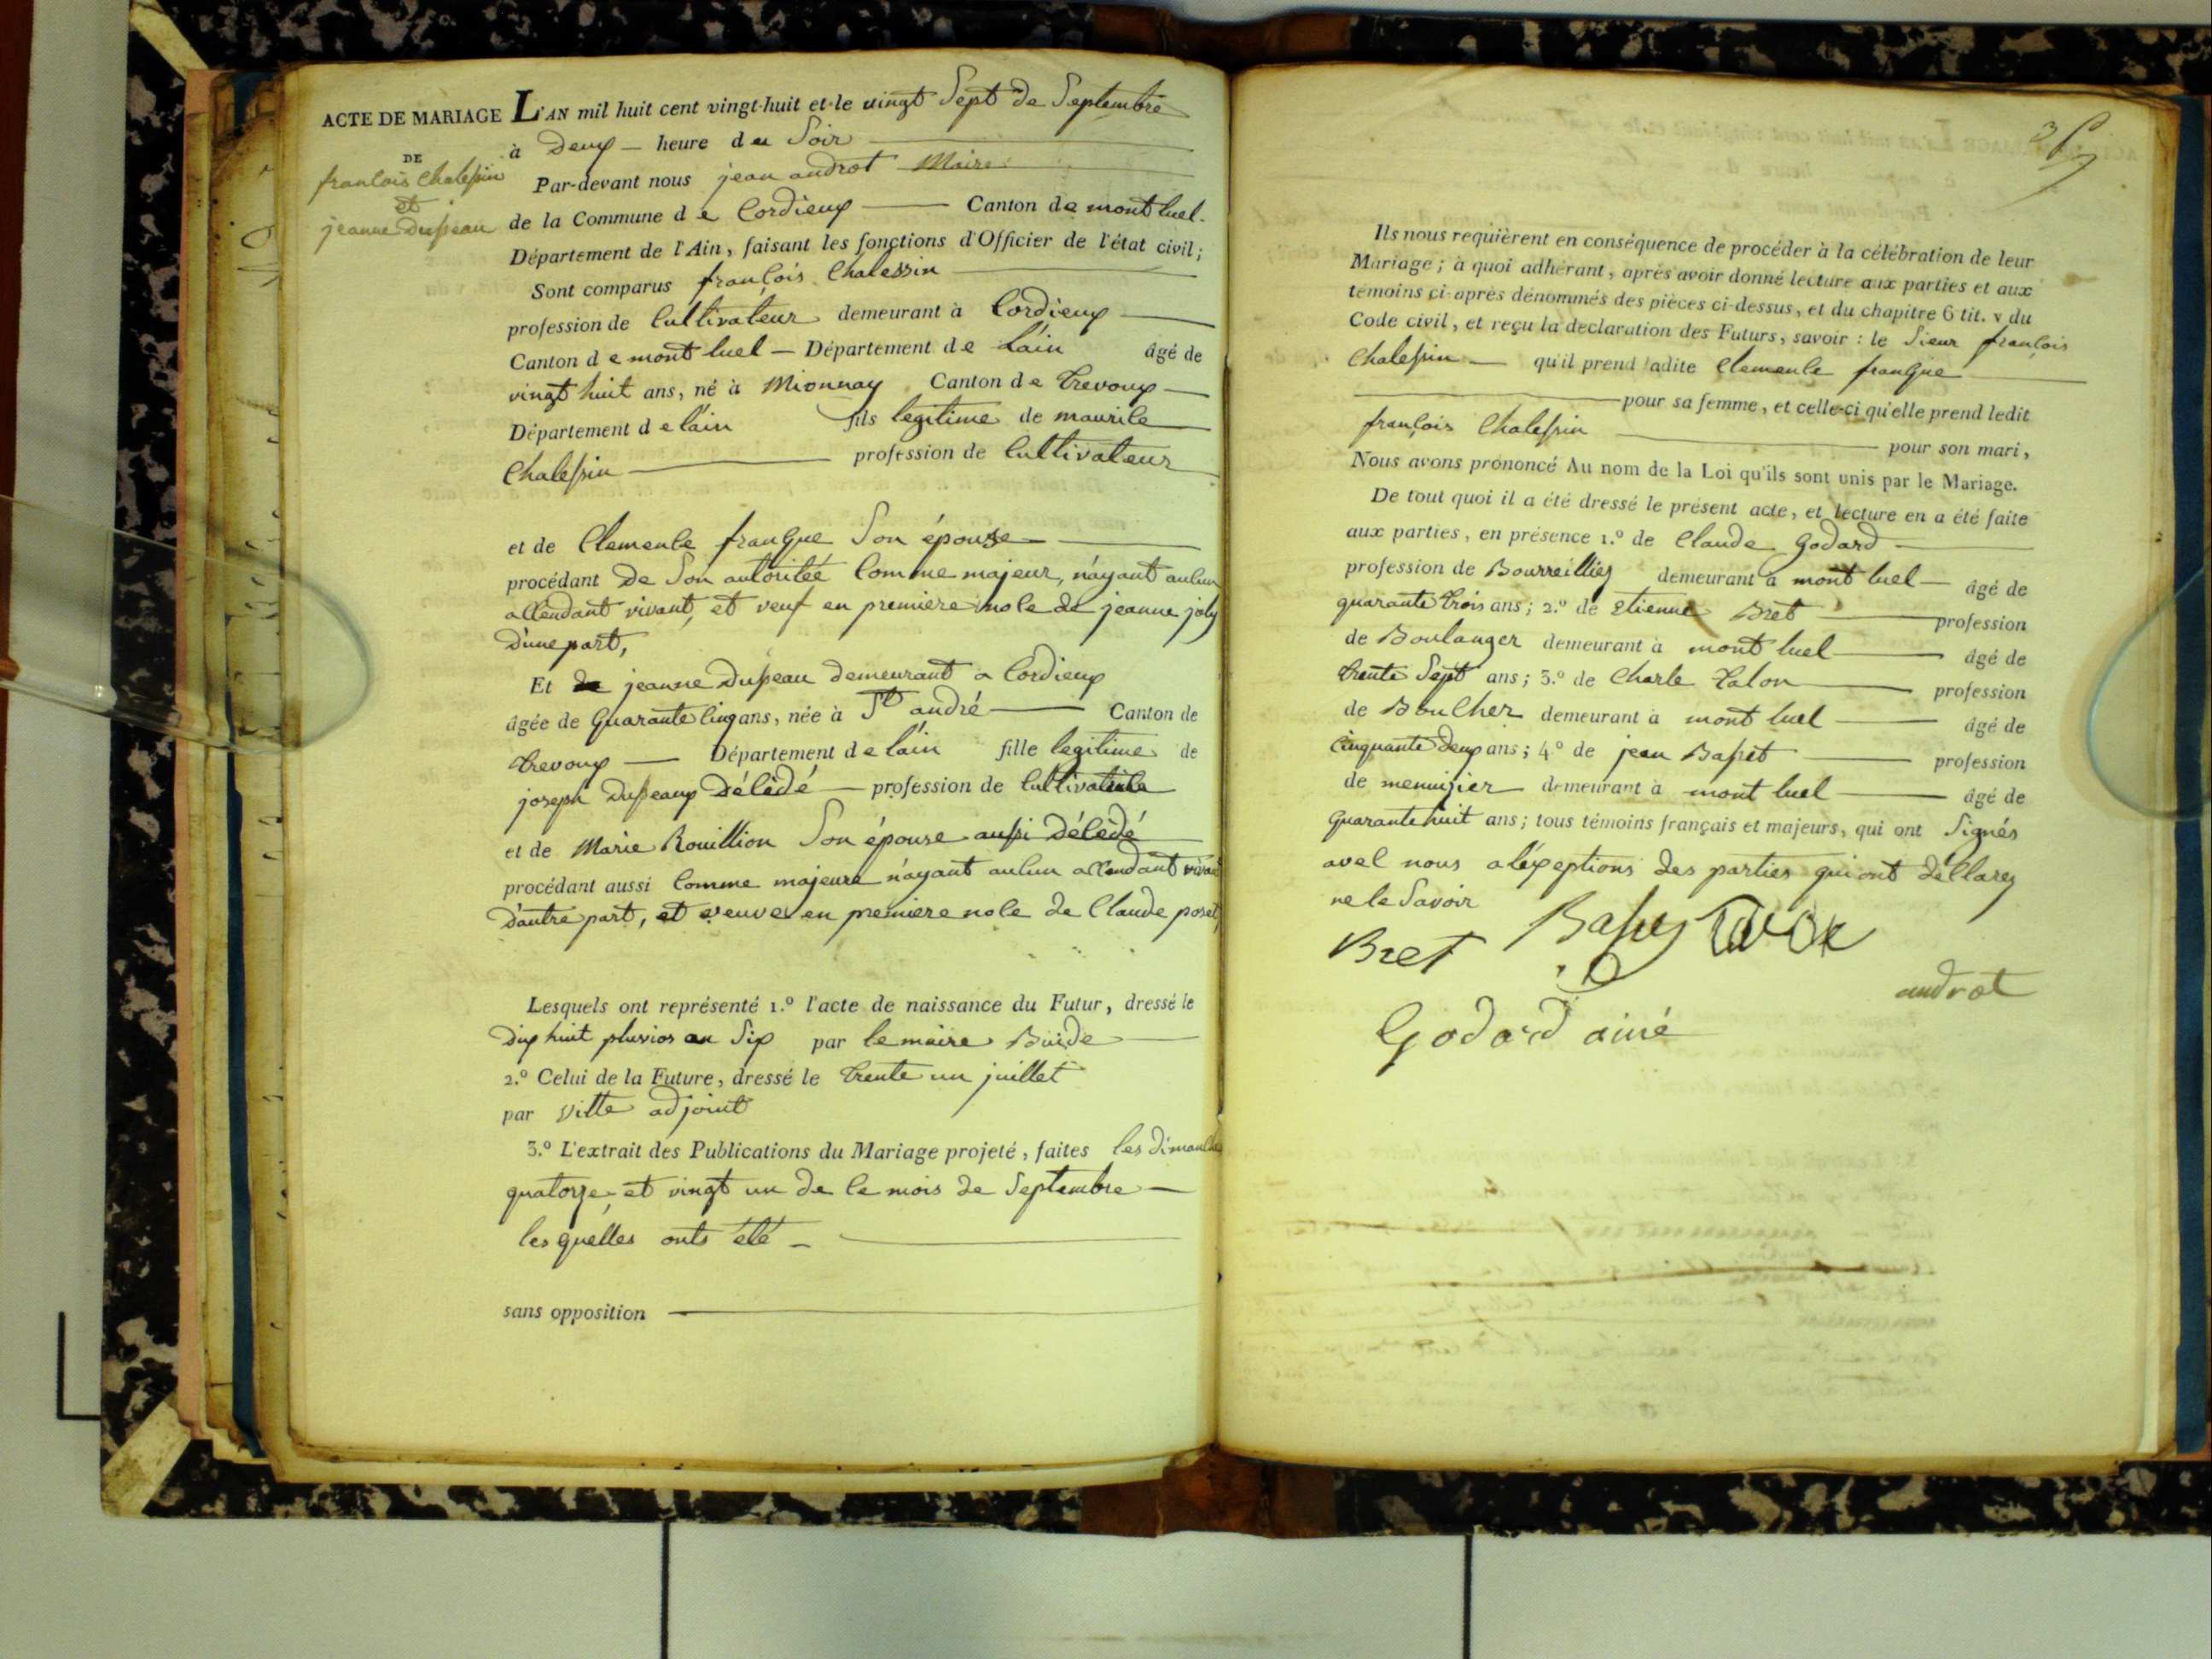 ACTE DE MARIAGE L'AN mil huit cent vingt-huit et le vingt Sept de Septembre
DE
françois Chalessin
et
jeanne Dusseau
à Deux heure du Soir
Par-devant nous jean androt Maire
de la Commune de Cordieux Canton de mont luel.
Département de l'Ain, faisant les fonctions d'Officier de l'état civil;
Sont comparus françois Chalessin
profession de Cultivateur demeurant à Cordieux
Canton de mont luel Département de Lain âgé de
vingt huit ans, né à Mionnay Canton de trevoux
Département de lain fils legitime de maurice
Chalessin profession de Cultivateur
et de Clemence franque Son épouse
procédant De Son autoritéé Comme majeur, n'ayant aucun
accendant vivant, et veuf en premiere noce de jeanne joly
D'une part,
Et jeanne Dusseau demeurant a Cordieux
âgée de Quarante Cinq ans, née à St andré Canton de
trevoux Département de lain fille legitime de
joseph Dusseaux Décèdé profession de
et de Marie Rouillion Son épouse aussi Décèdé
procédant aussi Comme majeure n'ayant aucun accendant vivant
D'autre part, et veuve en premiere noce de Claude
Lesquels ont représenté 1.º l'acte de naissance du Futur, dressé le
Dix huit pluvios an Six par le maire Buide
2.º Celui de la Future, dressé le trente un juillet
par Vitte adjoint
3.º L'extrait des Publications du Mariage projeté, faites les dimanches
quatorze, et vingt un de ce mois de Septembre
les quelles onts été
sans opposition
Ils nous requièrent en conséquence de procéder à la célébration de leur
Mariage; à quoi adhérant, après avoir donné lecture aux parties et aux
témoins ci-après dénommés des pièces ci-dessus, et du chapitre 6 tit. v du
Code civil, et reçu la declaration des Futurs, savoir : le Sieur françois
Chalessin qu'il prend ladite Clemence franque
pour sa femme, et celle-ci qu'elle prend ledit
françois Chalessin pour son mari,
Nous avons prononcé Au nom de la Loi qu'ils sont unis par le Mariage.
De tout quoi il a été dressé le présent acte, et lecture en a été faite
aux parties, en présence 1.º de Claude Godard
profession de Bourreillier demeurant à mont luel âgé de
quarante trois ans; 2.º de Etienne Bret profession
de Boulanger demeurant à mont luel âgé de
trente Sept ans; 3.º de Charle Talon profession
de Boucher demeurant à mont luel âgé de
Cinquante deux ans; 4.º de jean Basset profession
de menuizier demeurant à mont luel âgé de
Quarante huit ans; tous témoins français et majeurs, qui ont Signés
avec nous a l'éxeptions des parties qui ont déClarez
ne le Savoir
Bret
androt
Godard ainé